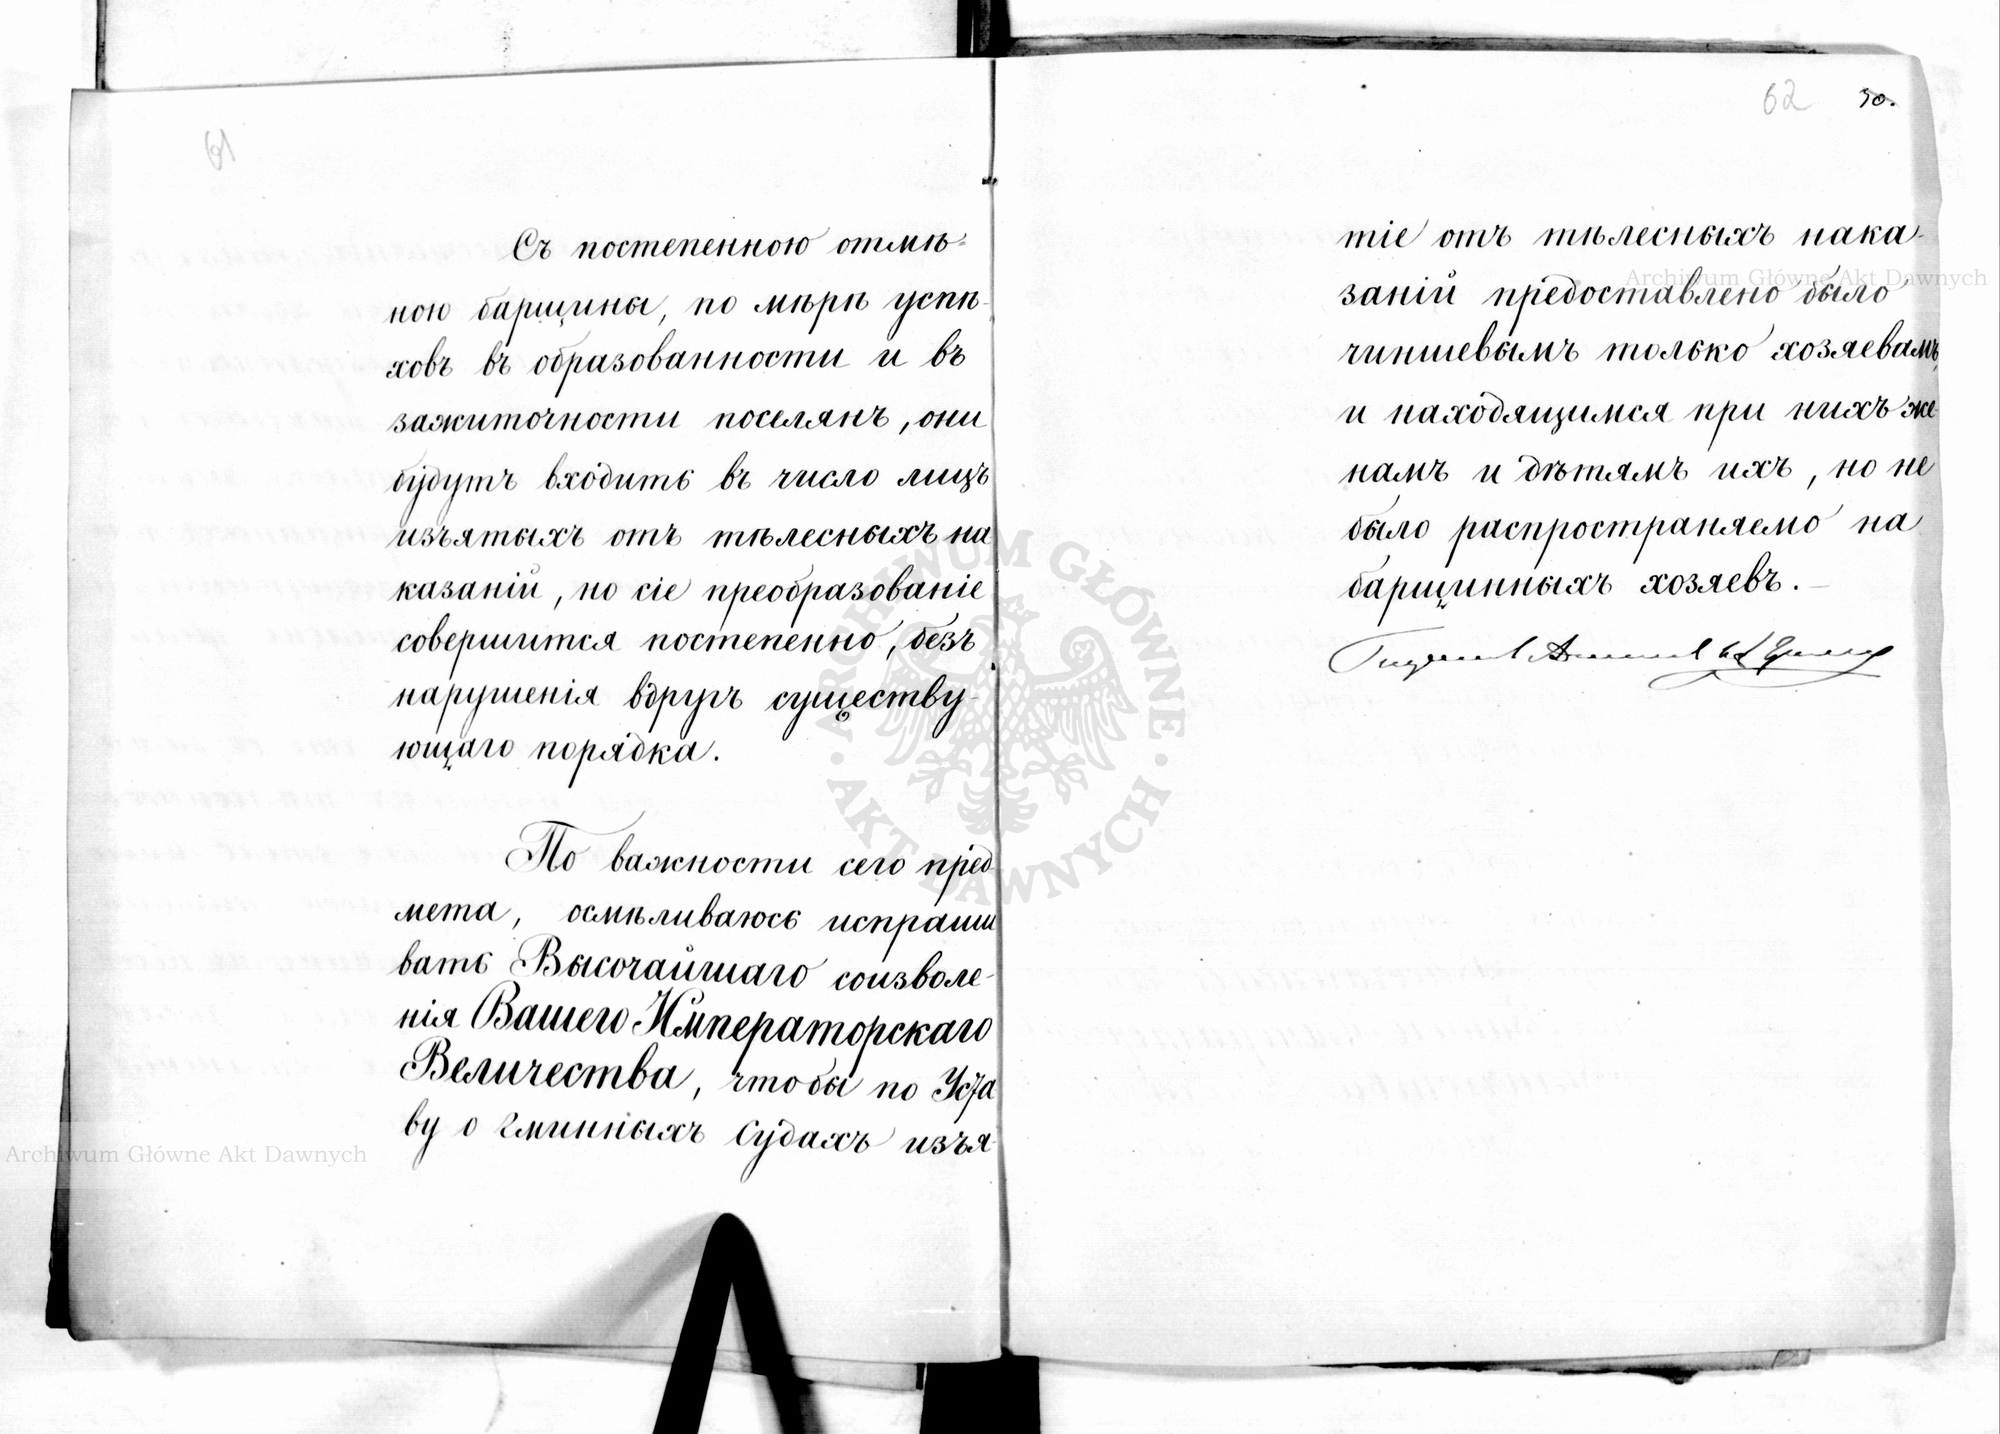 61
Съ постепенною отмѣ-
ною барщины, по мѣрѣ успѣ-
ховъ въ образованности и въ
зажиточности поселянъ, они
будутъ входить въ число лицъ
изъятыхъ отъ тѣлесныхъ на
казаній, но сіе преобразованіе
совершится постепенно, безъ
нарушенія вдругъ существу-
ющаго порядка.
По важности сего пред-
мета, осмѣливаюсь испраши
вать Высочайшаго соизволе-
нія Вашего Императорскаго
Величества, чтобы по Уста
ву о гминныхъ Судахъ изъя-
62 30.
тіе отъ тѣлесныхъ нака-
заній предоставлено было
чиншевымъ только хозяевамъ,
и находящимся при нихъ же-
намъ и дѣтямъ ихъ, но не
было распространяемо на
барщинныхъ хозяевъ.—
Archiwum Główne Akt Dawnych
ARCHIWUM GŁÓWNE · AKT DAWNYCH ·
Archiwum Główne Akt Dawnych